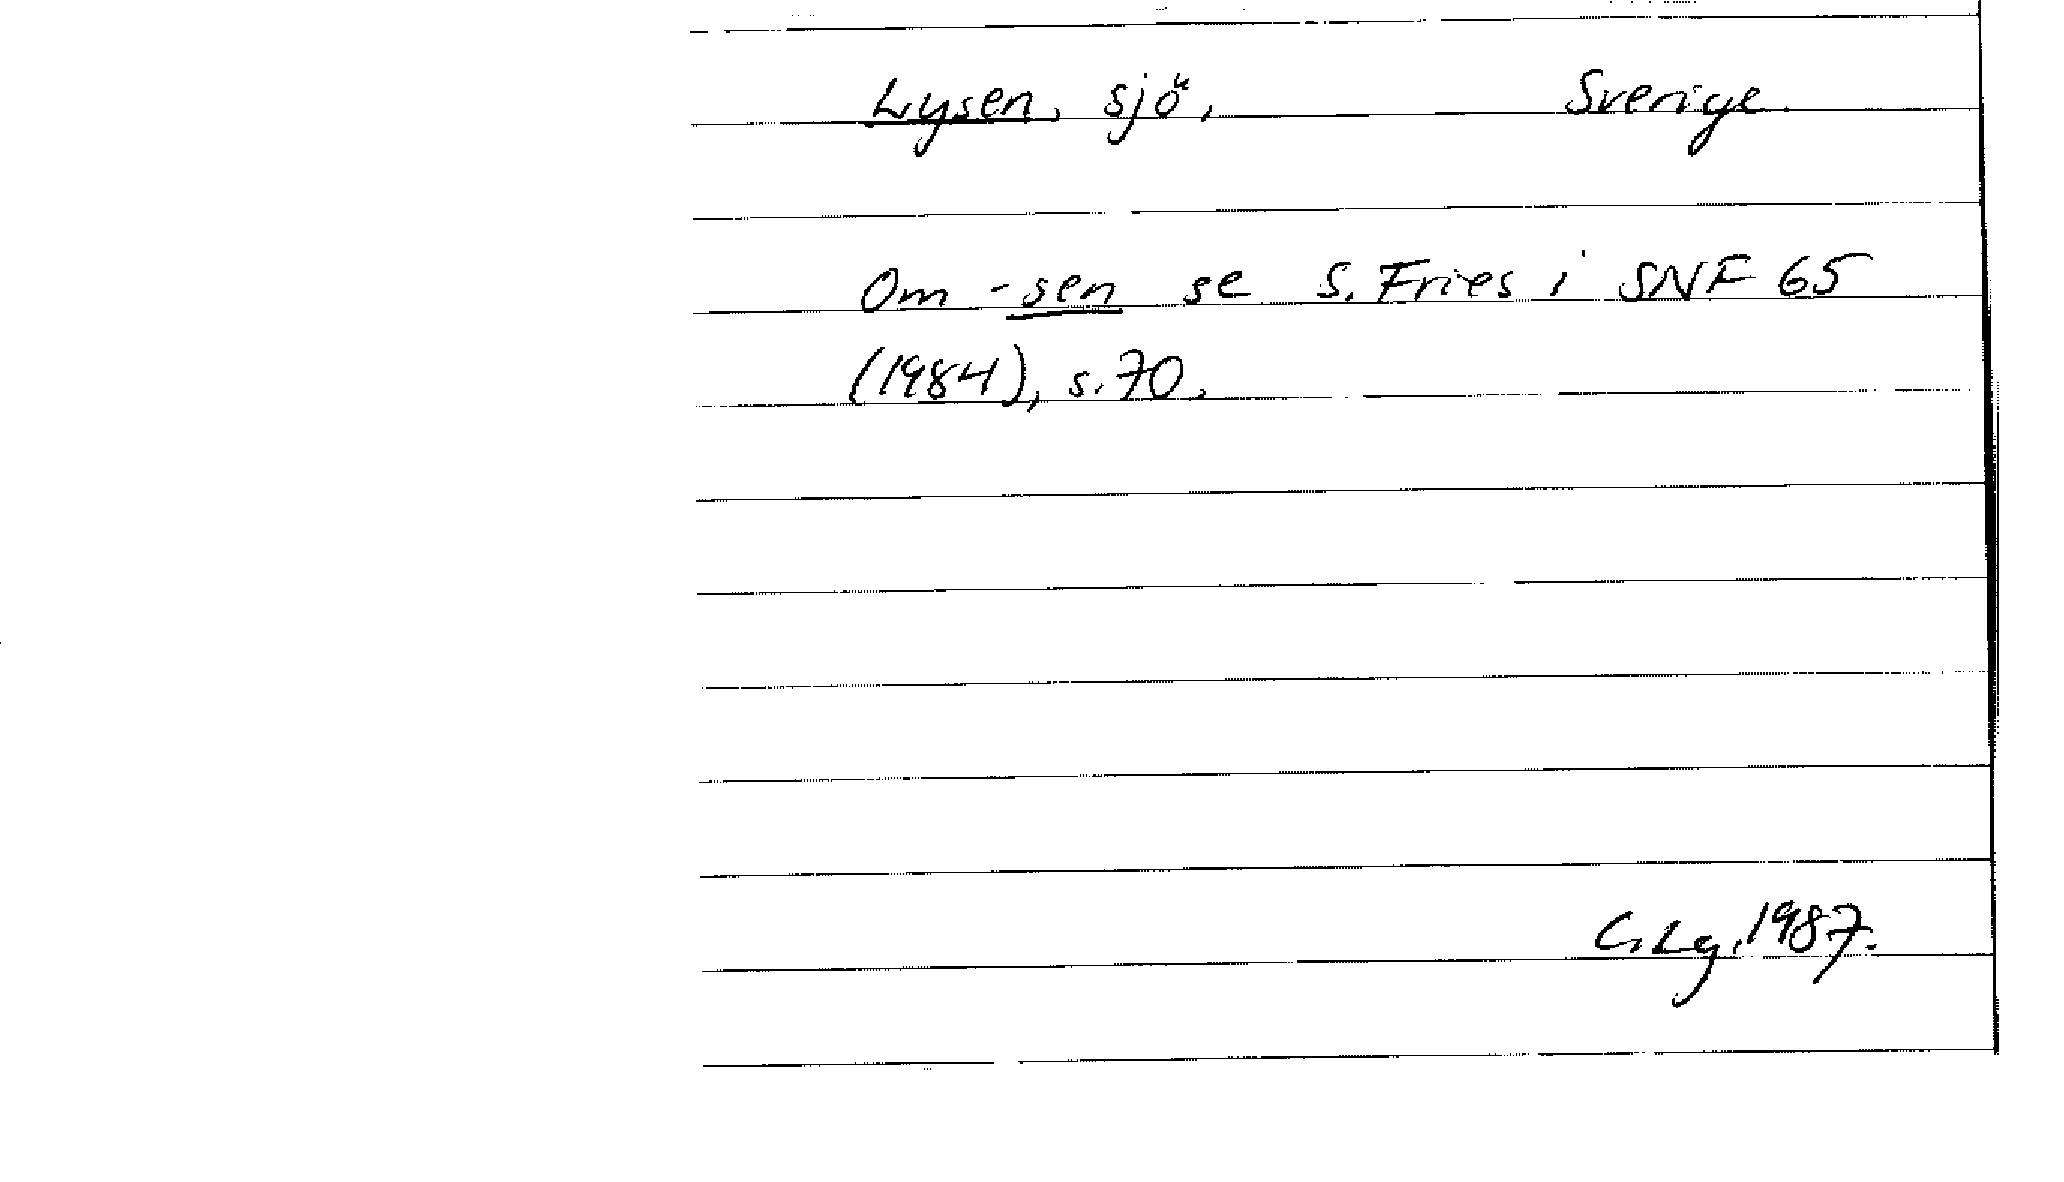 Lysen, sjö, Sverige.
Om -sen se S. Fries i SNF 65
(1984), s. 70.
C. Lg. 1987.